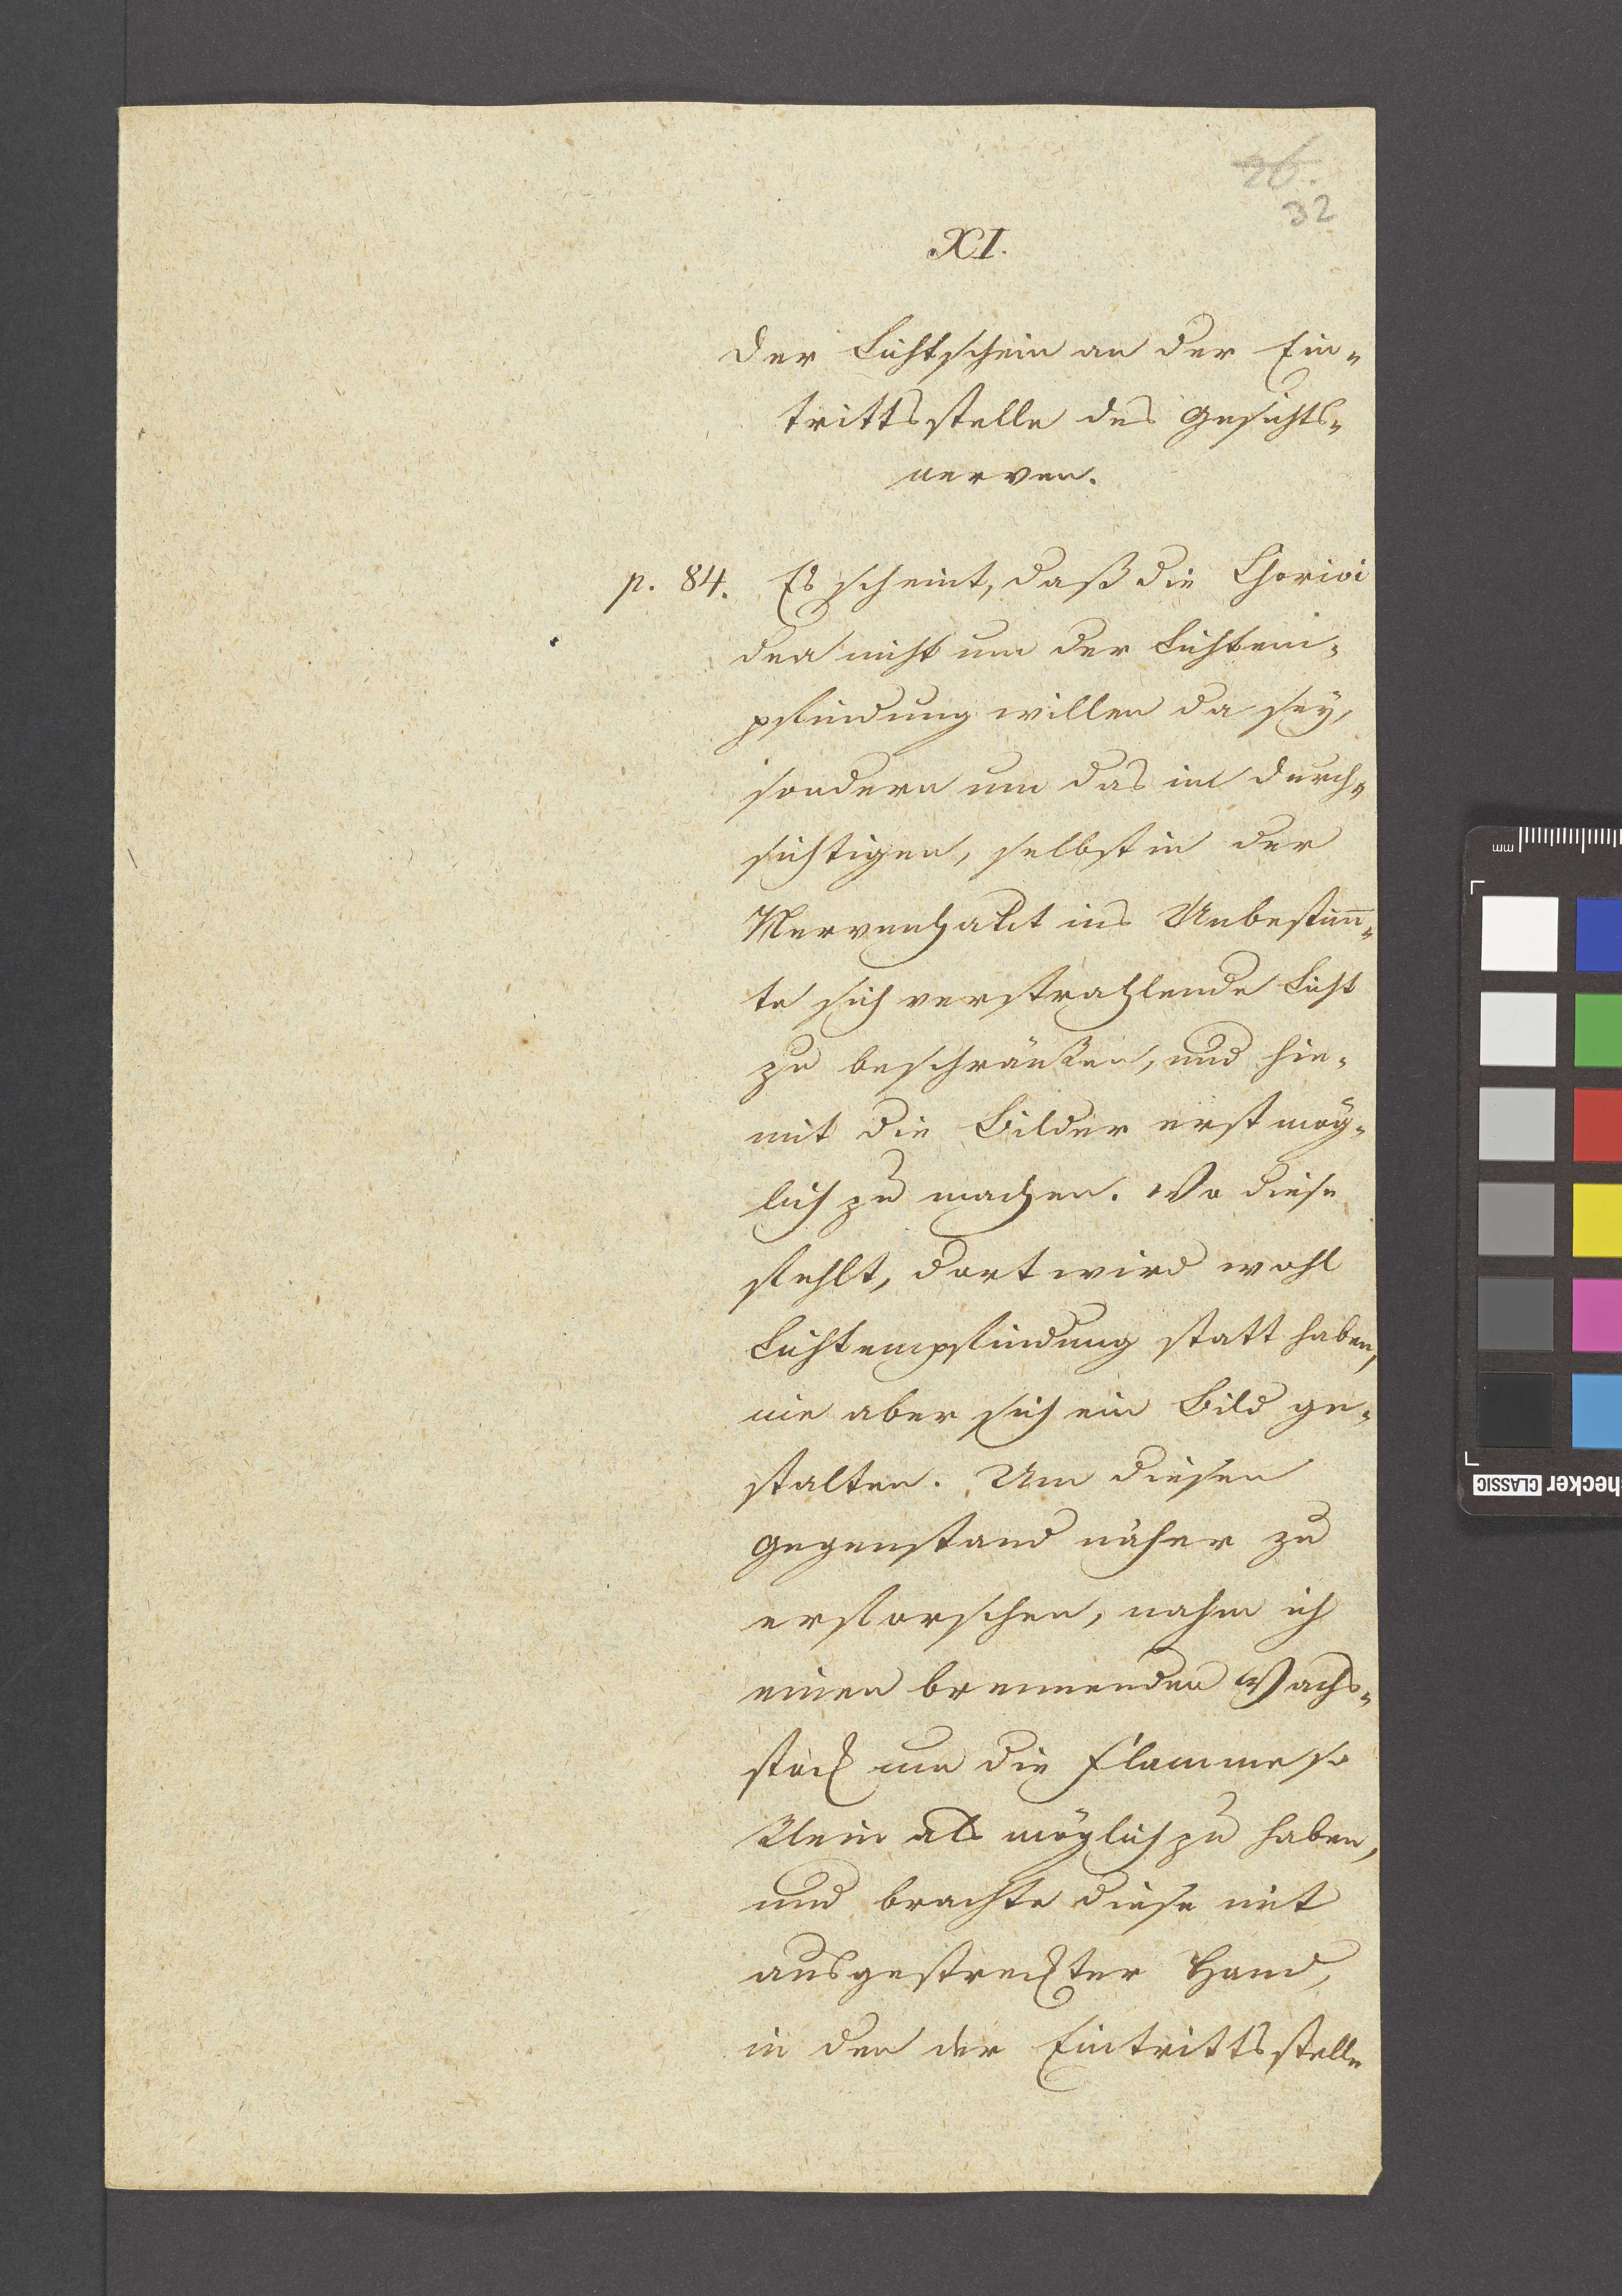 26.
32
XI.
Der Lichtschein an der Ein-
trittsstelle des Gesichts-
nerven.
p. 84. Es scheint, daß die Chorioi
dea nicht um der Lichtem-
pfindung willen da sey,
sondern um das im Durch-
sichtigen, selbst in der
Nervenhaut ins Unbestim̅-
te sich verstrahlende Licht
zu beschränken, und hie-
mit die Bilder erst mög-
lich zu machen. Wo diese
fehlt, dort wird wohl
Lichtempfindung statt haben,
nie aber sich ein Bild ge-
stalten. Um diesen
Gegenstand näher zu
erforschen, nahm ich
einen brennenden Wachs-
stock um die Flamme so
klein als möglich zu haben,
und brachte diese mit
ausgestreckter Hand,
in den der Eintrittsstelle
mm
checker CLASSIC